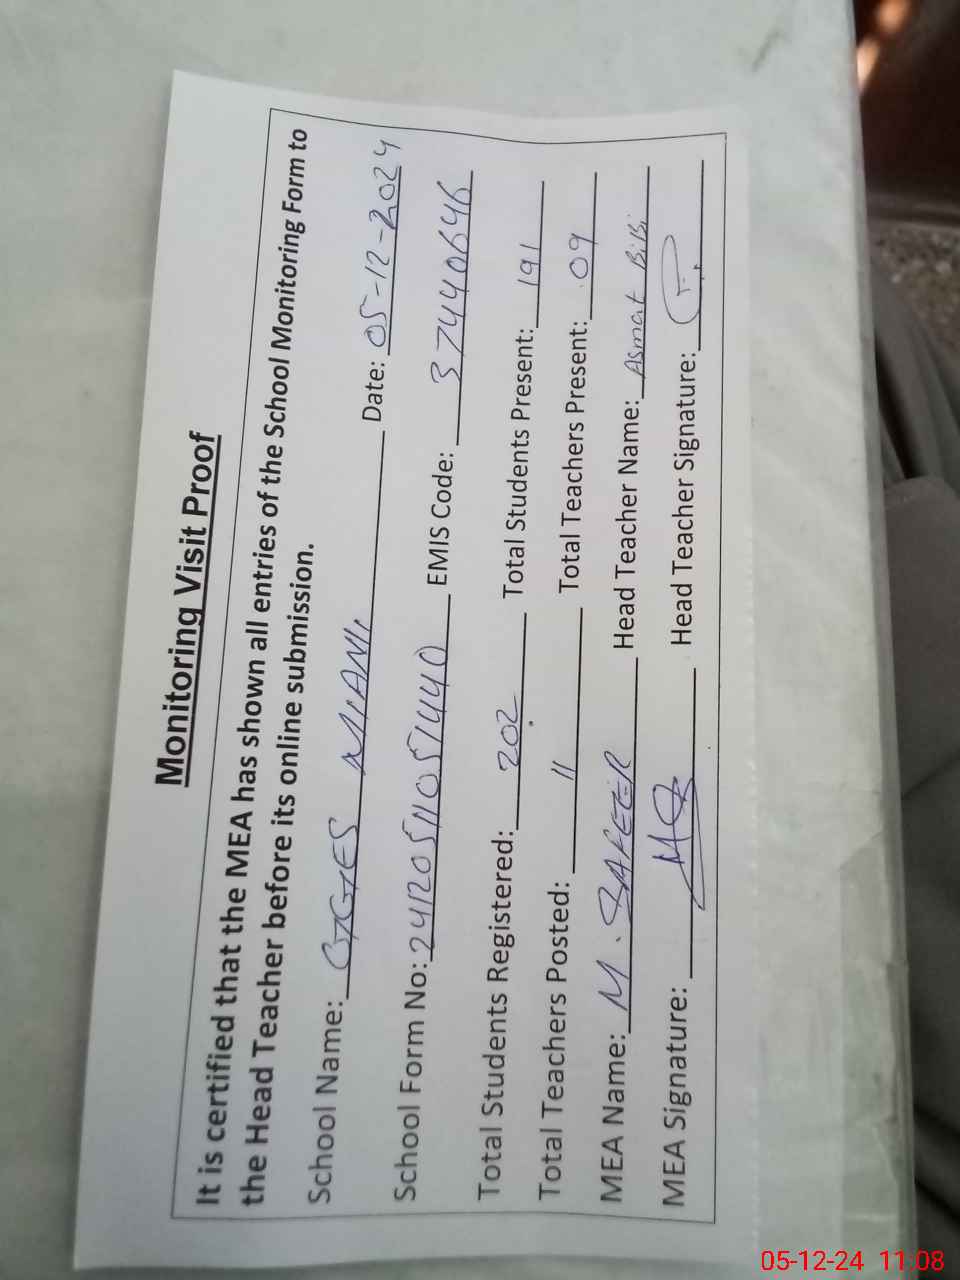 Monitoring Visit Proof
It is certified that the MEA has shown all entries of the School Monitoring Form to
the Head Teacher before its online submission.
School Name: GGES MIANI Date: 05-12-2024
School Form No: 24120511051440 EMIS Code: 37440646
Total Students Registered: 202 Total Students Present: 191
Total Teachers Posted: 11 Total Teachers Present: 09
MEA Name: M. SAFEER Head Teacher Name: Asmat BiBi
MEA Signature: Head Teacher Signature:
05-12-24 11:08